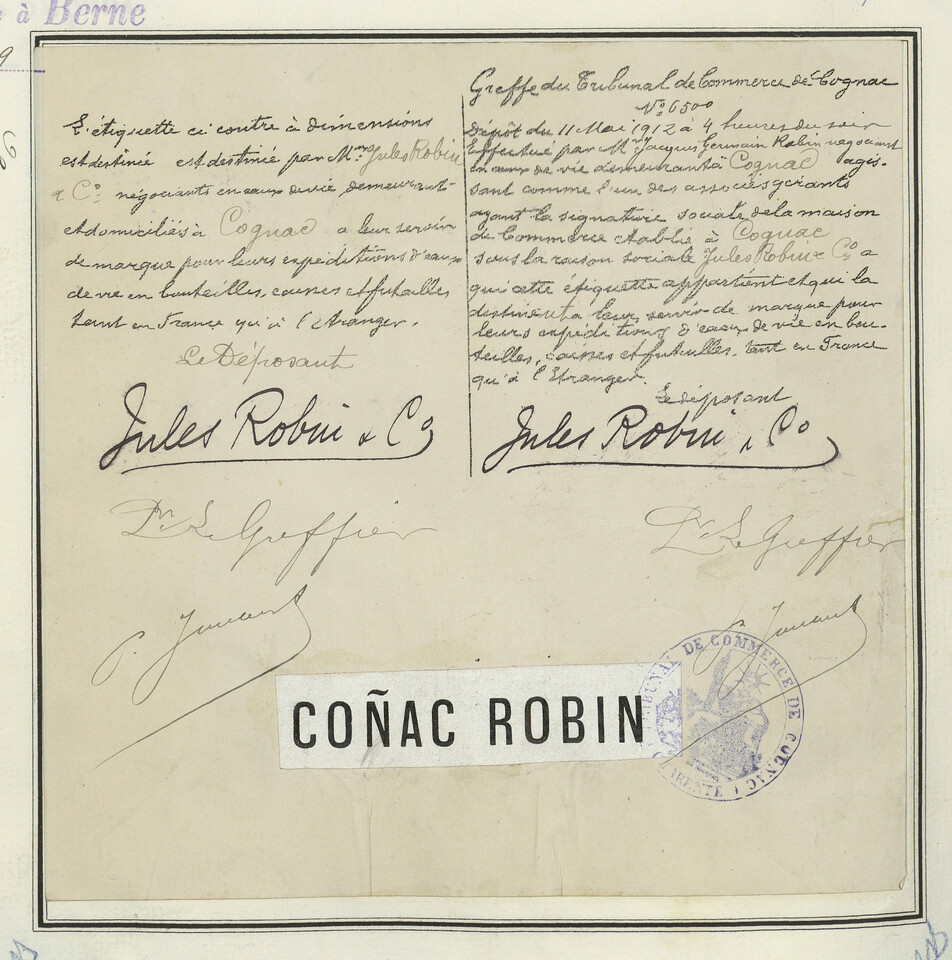 à Berne
L'étiquette ci contre à dimensions
est destinée est destinée par M.rs Jules Robin
& Co. négociants en eaux de vie demeurant
et domiciliés à Cognac a leur servir
de marque pour leurs expéditions d'eaux
de vie en bouteilles, caisses et futailles
tant en France qu'à l'Etranger.
Le Déposant
Jules Robin & Co
Pr. Le Greffier
Greffe du Tribunal de Commerce de Cognac
No. 6500
Dépôt du 11 Mai 1912 à 4 heures du soir
Effectué par M. Jacques Germain Robin négociant
en eaux de vie demeurant à Cognac agis-
sant comme l'un des associés gérants
ayant la signature sociale de la maison
de Commerce etablie à Cognac
sous la raison sociale Jules Robin & Co. a
qui cette étiquette appartient et qui la
destinent a leur servir de marque pour
leurs expéditions d'eaux de vie en bou-
teilles, caisses et futailles, tant en France
qu'à l'Etranger.
Le déposant
Jules Robin & Co
Pr. Le Greffier
COÑAC ROBIN
TRIBUNAL DE COMMERCE DE COGNAC